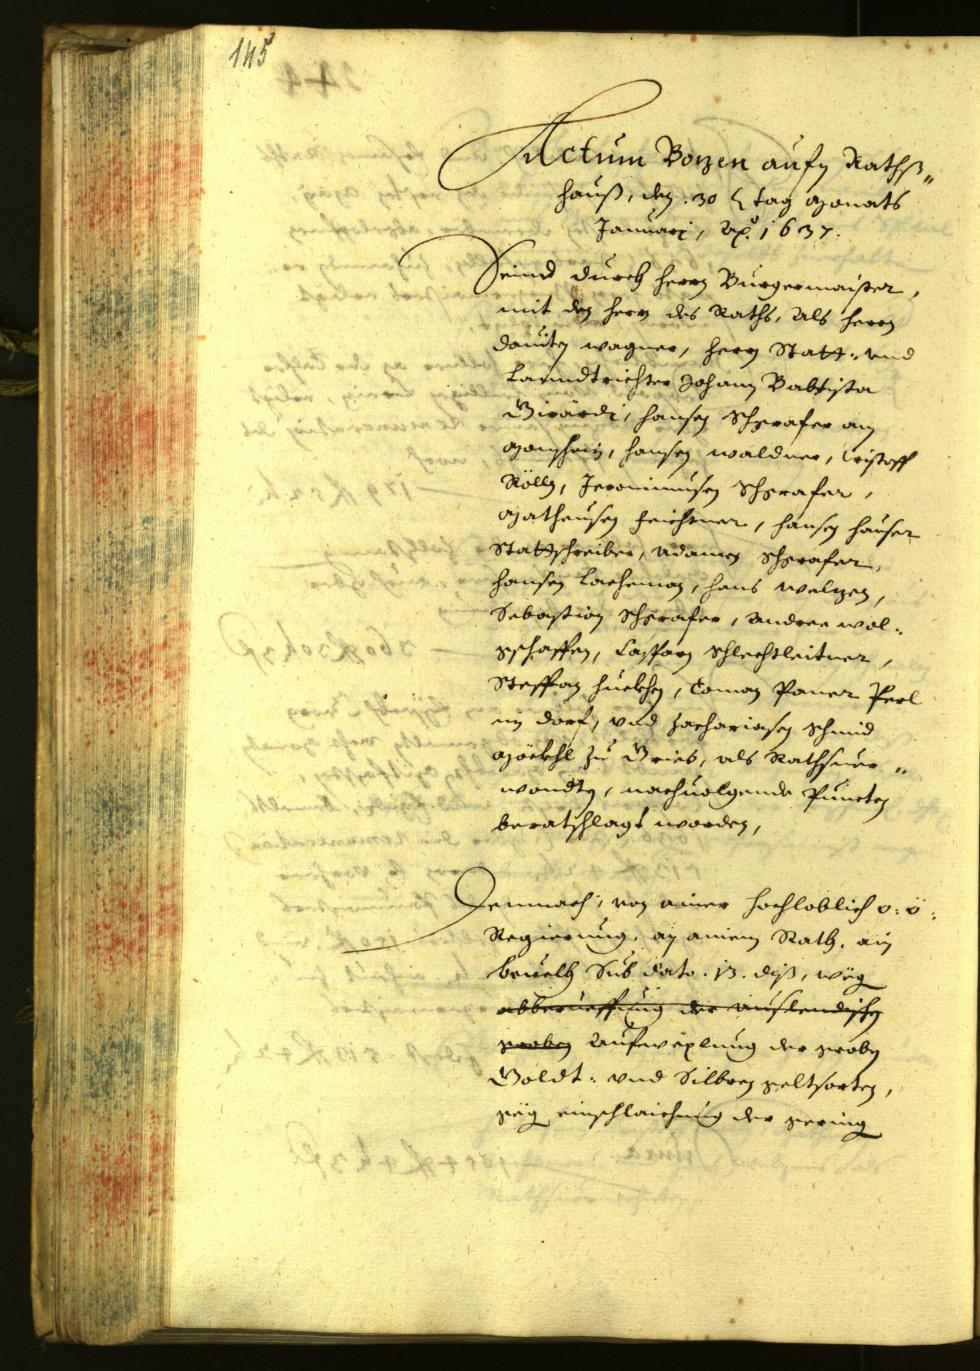 145
Actum Bozen aufn Rathß„
hauß, den .30 tag Monats
Januarj, Ao. 1637.
Seind durch herrn Burgermaister,
mit den herrn des Raths, als herrn
Dauiten Wagner, herrn Statt- und
Lanndtrichter Johann Babtista
Girardi, Hansen Schgrafer am
Hansen Waldner, Cristoff
Rölln, Jeronimusen Schgrafer,
Matheusen Feichtner, Hansen Hauser
Stattschreiber, Adamen Schgrafer,
Hansen Lacheman, Hans Welzen,
Sebastian Schgrafer, Andree Wol-
gschaffen, Casparn Schlechtleitner,
Steffan Huebhen, Toman Paur Perl
im Dorf, und Zachariasen Schmid
zu Gries, als Rathsuer„
wondten, nachuolgende Puncten
beratschlagt worden,
Demnach, von ainer hochloblich o: ö:
Regierung, an ainem Rath, ain
beuelh Sub dato .13. diß, wegen
abberueffung der auslendischen
groben Aufwexlung der groben
Goldt- und Silbren geltsorten,
gegen einschlaichung der gering